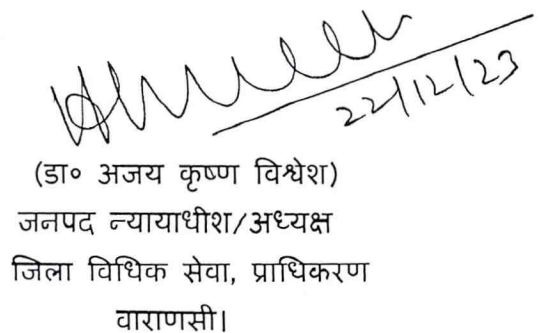 22/12/23
(डा० अजय कृष्ण विश्वेश)
जनपद न्यायाधीश/अध्यक्ष
जिला विधिक सेवा, प्राधिकरण
वाराणसी।